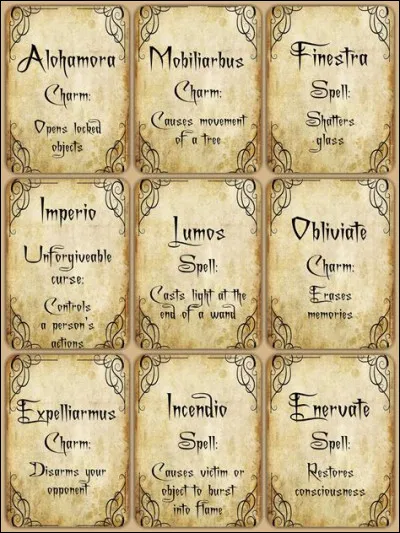 Alohamora
Charm:
Opens locked
objects
Mobiliarbus
Charm:
Causes movement
of a tree
Finestra
Spell:
Shatters
glass
Imperio
Unforgiveable
curse:
Controls
a person's
actions
Lumos
Spell:
Casts light at the
end of a wand
Obliviate
Charm:
Erases
memories
Expelliarmus
Charm:
Disarms your
opponent
Incendio
Spell:
Causes victim or
object to burst
into flame
Enervate
Spell:
Restores
consciousness